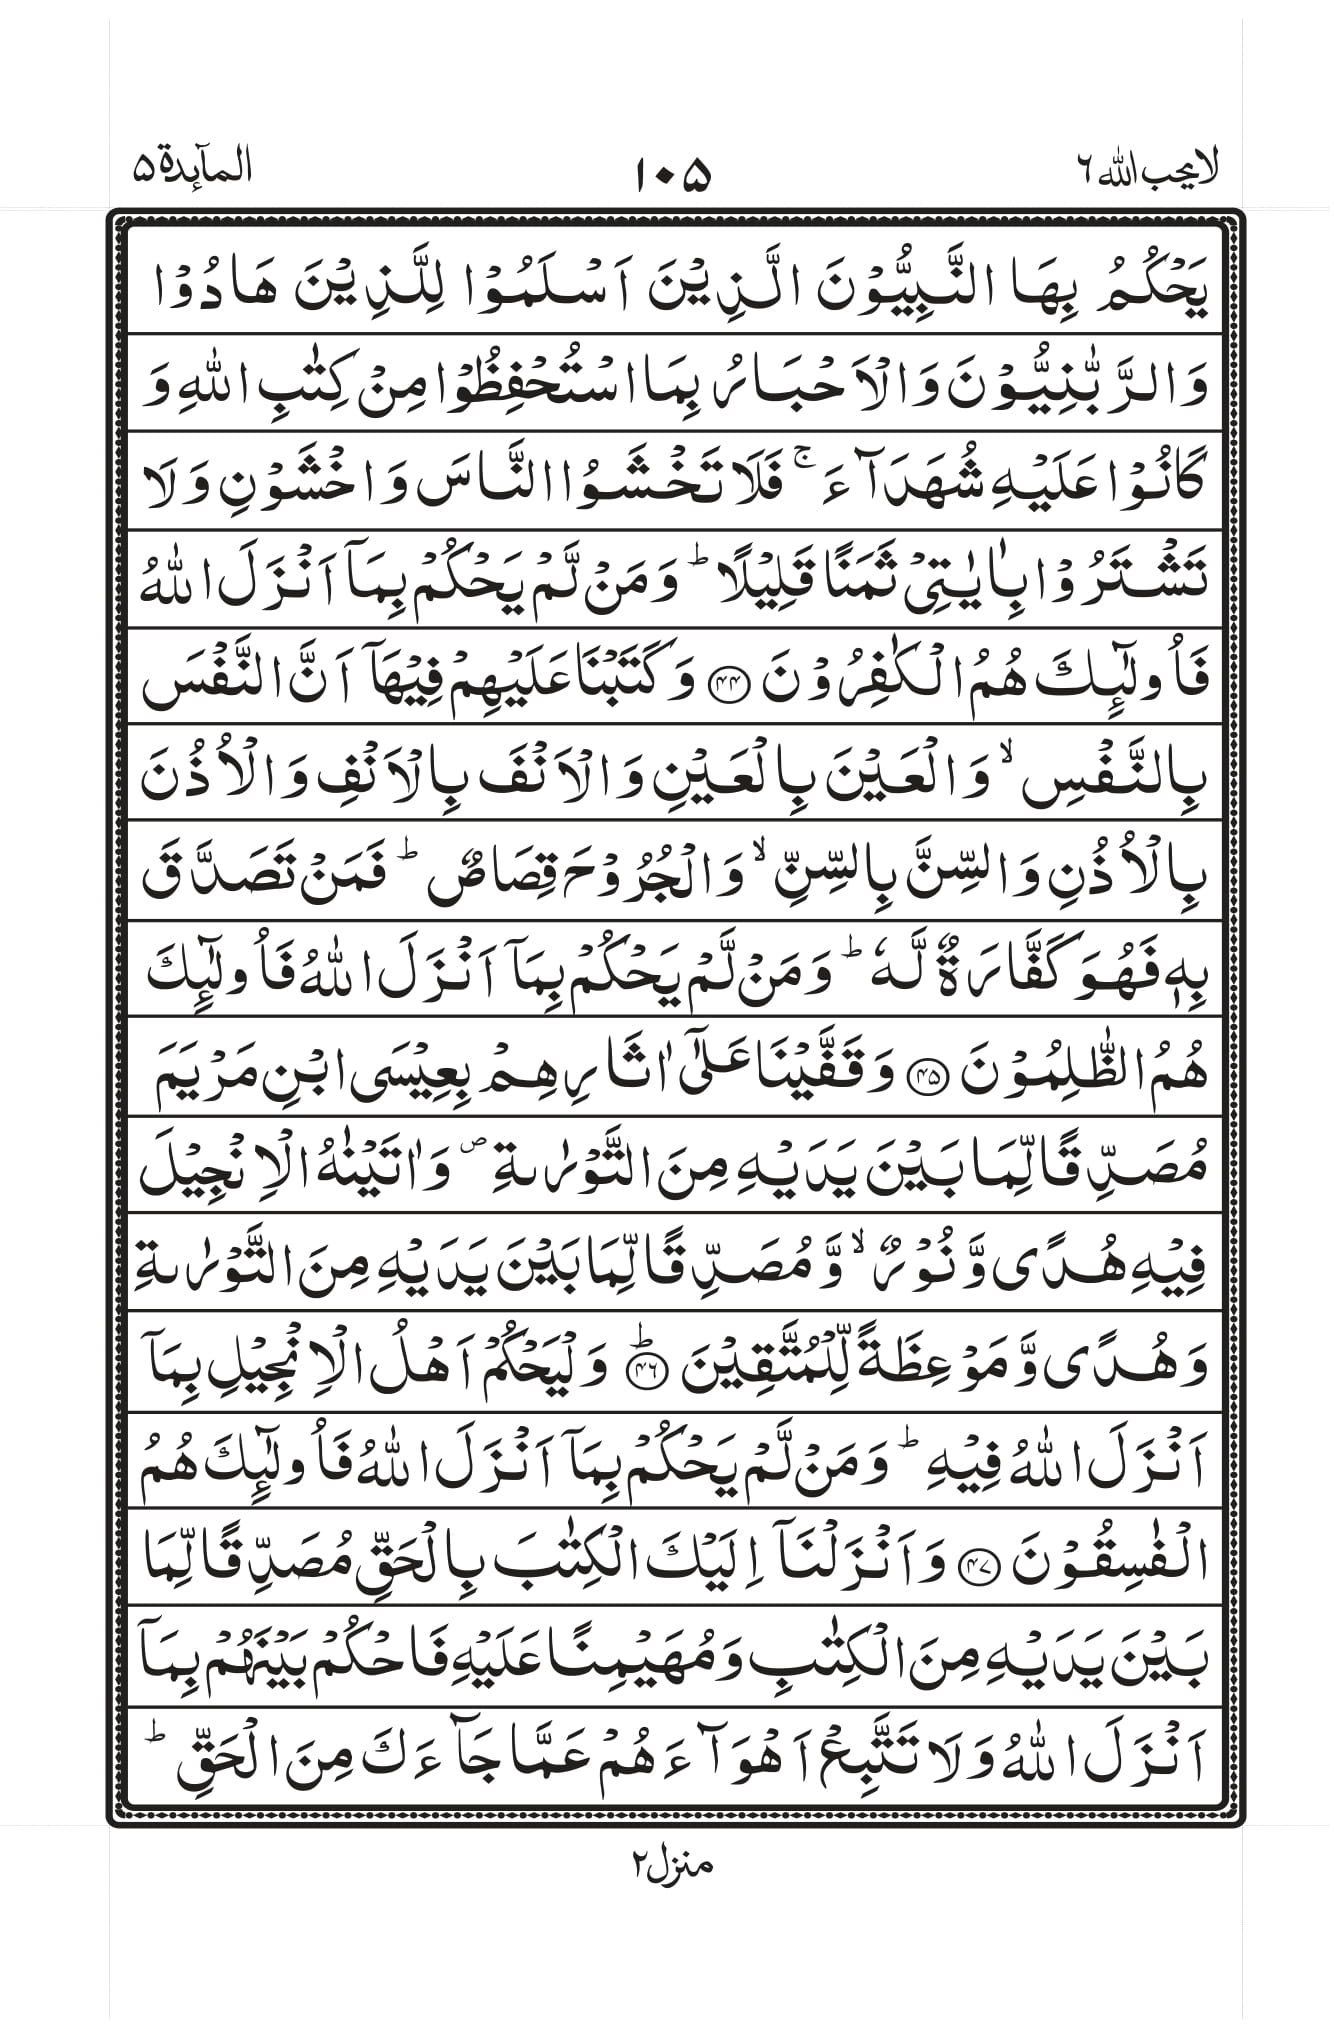 لا یحب الله ۶
۱۰۵
المآىِٕدة ۵
یَحْكُمُ بِهَا النَّبِیُّوْنَ الَّذِیْنَ اَسْلَمُوْا لِلَّذِیْنَ هَادُوْا
وَ الرَّبّٰنِیُّوْنَ وَ الْاَحْبَارُ بِمَا اسْتُحْفِظُوْا مِنْ كِتٰبِ اللّٰهِ وَ
كَانُوْا عَلَیْهِ شُهَدَآءَ ۚ فَلَا تَخْشَوُا النَّاسَ وَ اخْشَوْنِ وَ لَا
تَشْتَرُوْا بِاٰیٰتِیْ ثَمَنًا قَلِیْلًا ؕ وَ مَنْ لَّمْ یَحْكُمْ بِمَاۤ اَنْزَلَ اللّٰهُ
فَاُولٰٓىِٕكَ هُمُ الْكٰفِرُوْنَ ﴿۴۴﴾ وَ كَتَبْنَا عَلَیْهِمْ فِیْهَاۤ اَنَّ النَّفْسَ
بِالنَّفْسِ ۙ وَ الْعَیْنَ بِالْعَیْنِ وَ الْاَنْفَ بِالْاَنْفِ وَ الْاُذُنَ
بِالْاُذُنِ وَ السِّنَّ بِالسِّنِّ ۙ وَ الْجُرُوْحَ قِصَاصٌ ؕ فَمَنْ تَصَدَّقَ
بِهٖ فَهُوَ كَفَّارَةٌ لَّهٗ ؕ وَ مَنْ لَّمْ یَحْكُمْ بِمَاۤ اَنْزَلَ اللّٰهُ فَاُولٰٓىِٕكَ
هُمُ الظّٰلِمُوْنَ ﴿۴۵﴾ وَ قَفَّیْنَا عَلٰۤی اٰثَارِهِمْ بِعِیْسَی ابْنِ مَرْیَمَ
مُصَدِّقًا لِّمَا بَیْنَ یَدَیْهِ مِنَ التَّوْرٰىةِ ۪ وَ اٰتَیْنٰهُ الْاِنْجِیْلَ
فِیْهِ هُدًی وَّ نُوْرٌ ۙ وَّ مُصَدِّقًا لِّمَا بَیْنَ یَدَیْهِ مِنَ التَّوْرٰىةِ
وَ هُدًی وَّ مَوْعِظَةً لِّلْمُتَّقِیْنَ ؕ﴿۴۶﴾ وَ لْیَحْكُمْ اَهْلُ الْاِنْجِیْلِ بِمَاۤ
اَنْزَلَ اللّٰهُ فِیْهِ ؕ وَ مَنْ لَّمْ یَحْكُمْ بِمَاۤ اَنْزَلَ اللّٰهُ فَاُولٰٓىِٕكَ هُمُ
الْفٰسِقُوْنَ ﴿۴۷﴾ وَ اَنْزَلْنَاۤ اِلَیْكَ الْكِتٰبَ بِالْحَقِّ مُصَدِّقًا لِّمَا
بَیْنَ یَدَیْهِ مِنَ الْكِتٰبِ وَ مُهَیْمِنًا عَلَیْهِ فَاحْكُمْ بَیْنَهُمْ بِمَاۤ
اَنْزَلَ اللّٰهُ وَ لَا تَتَّبِعْ اَهْوَآءَهُمْ عَمَّا جَآءَكَ مِنَ الْحَقِّ ؕ
منزل ۲